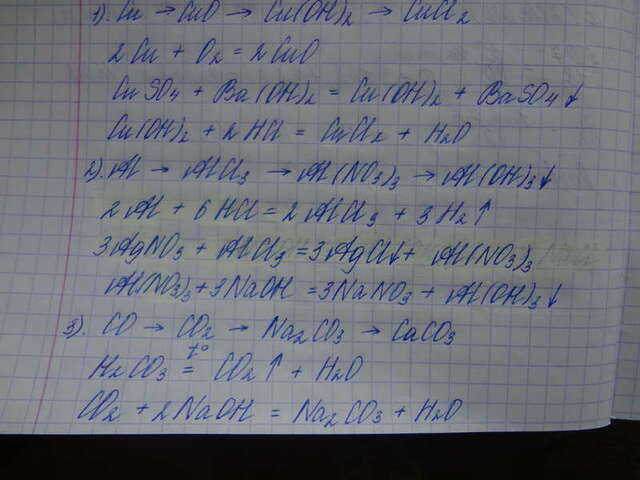 1). Cu → CuO → Cu(OH)₂ → CuCl₂
2Cu + O₂ = 2CuO
CuSO₄ + Ba(OH)₂ = Cu(OH)₂ + BaSO₄↓
Cu(OH)₂ + 2HCl = CuCl₂ + H₂O
2). Al → AlCl₃ → Al(NO₃)₃ → Al(OH)₃↓
2Al + 6HCl = 2AlCl₃ + 3H₂↑
3AgNO₃ + AlCl₃ = 3AgCl↓ + Al(NO₃)₃
Al(NO₃)₃ + 3NaOH = 3NaNO₃ + Al(OH)₃↓
3). CO → CO₂ → Na₂CO₃ → CaCO₃
H₂CO₃ =t° CO₂↑ + H₂O
CO₂ + 2NaOH = Na₂CO₃ + H₂O